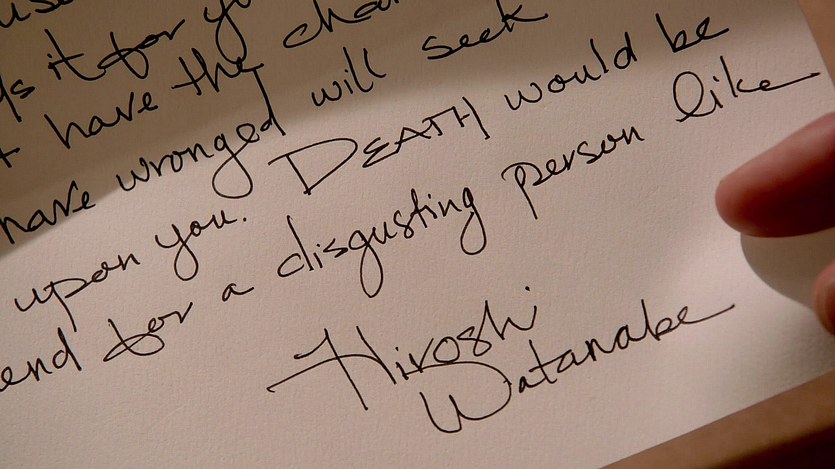 it for
have the
have wronged will seek
upon you. DEATH would be
end for a disgusting person like
Hiroshi
Watanabe